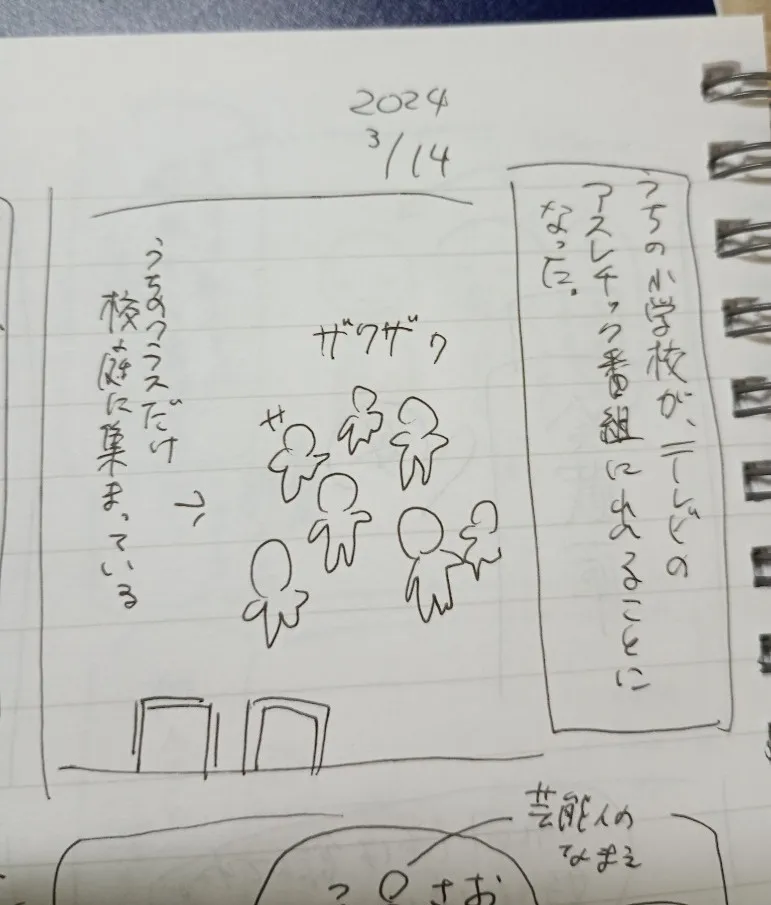 2024
3/14
うちの小学校が、テレビの
アスレチック番組に出ることに
なった。
ザワザワ
ザ
うちのクラスだけ
校庭に集まっている
芸能人の
なまえ
さお